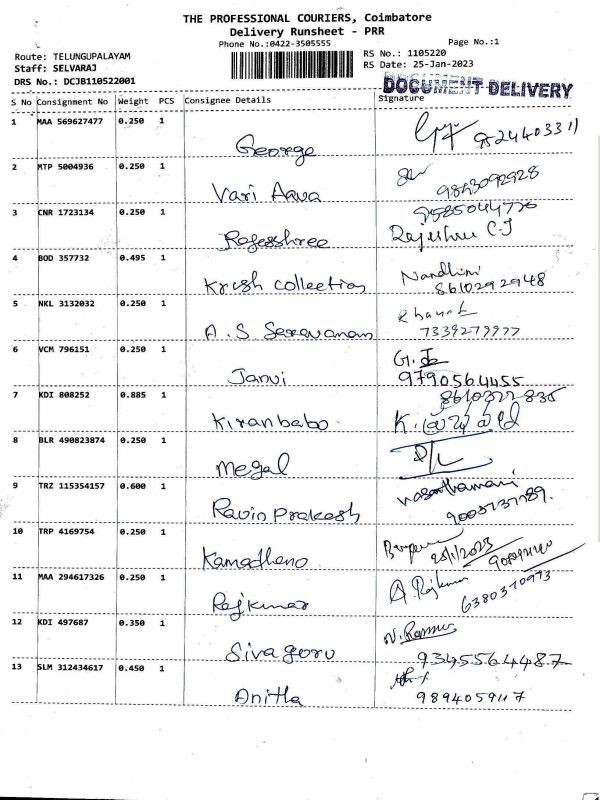 THE PROFESSIONAL COURIERS, Coimbatore
Delivery Runsheet - PRR
Phone No.:0422-3505555
Page No.:1
Route: TELUNGUPALAYAM
RS No.: 1105220
Staff: SELVARAJ
RS Date: 25-Jan-2023
DRS No.: DCJB110522001
DOCUMENT DELIVERY
S No Consignment No Weight PCS Consignee Details Signature
1 MAA 569627477 0.250 1
George 9524403311
2 MTP 5004936 0.250 1
Vari Aava 9843092928
3 CNR 1723134 0.250 1
Rajesshree Rajeshree C.J
4 BOD 357732 0.495 1 Nandhini
Krish collection 8610292948
5 NKL 3132032 0.250 1
A.S Saravanan 7339279977
6 VCM 796151 0.250 1
Janvi 9790564455
7 KDI 808252 0.885 1
Kiranbabo
8 BLR 490823874 0.250 1
megal
9 TRZ 115354157 0.600 1 vasanthamani
Ravin prakash
10 TRP 4169754 0.250 1 25/1/2023
Kamadheno
11 MAA 294617326 0.250 1 A. Rajkumar
Rajkumar 6380370973
12 KDI 497687 0.350 1
Siva guru 9345564487
13 SLM 312434617 0.450 1
Anitha